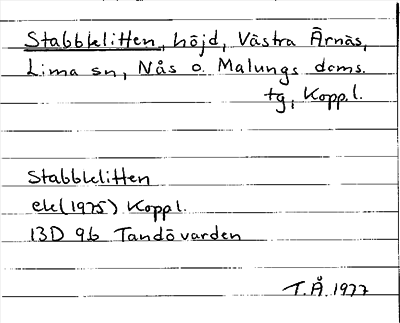 Stabblelitten, höjd, Västra Ärnäs,
Lima sn, Nås o. Malungs doms.
tg, Koppl.
Stabblelitten
ek (1975) Koppl.
13D 9b Tandövarden
T.Å. 1977